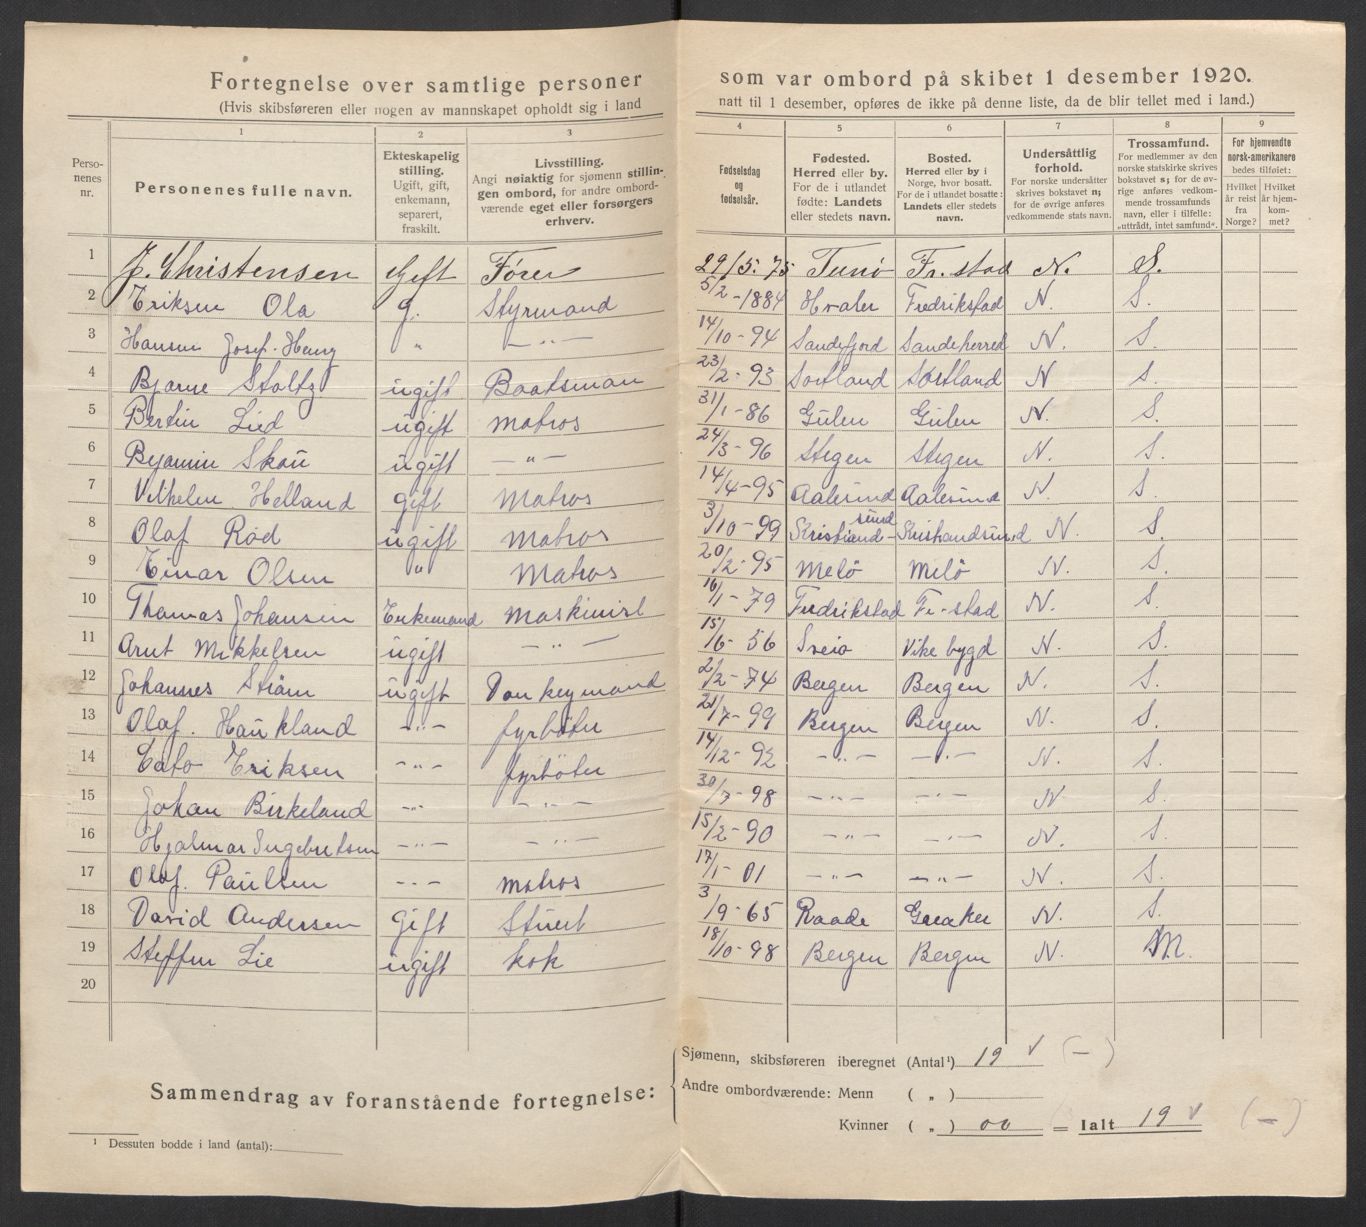 Fortegnelse over samtlige personer som var ombord på skibet 1 desember 1920.
(Hvis skibsføreren eller nogen av mannskapet opholdt sig i land natt til 1 desember, opføres de ikke på denne liste, da de blir tellet med i land.)
Personenes nr.
1 Personenes fulle navn.
2 Ekteskapelig stilling. Ugift, gift, enkemann, separert, fraskilt.
3 Livsstilling. Angi nøiaktig for sjømenn stillingen ombord, for andre ombordværende eget eller forsørgers erhverv.
4 Fødselsdag og fødselsår.
5 Fødested. Herred eller by. For de i utlandet fødte: Landets eller stedets navn.
6 Bosted. Herred eller by i Norge, hvor bosatt. For de i utlandet bosatte: Landets eller stedets navn.
7 Undersåttlig forhold. For norske undersåtter skrives bokstavet n; for de øvrige anføres vedkommende stats navn.
8 Trossamfund. For medlemmer av den norske statskirke skrives bokstavet s; for de øvrige anføres vedkommende trossamfunds navn, eller i tilfelle: „uttrådt, intet samfund".
9 For hjemvendte norsk-amerikanere bedes tilføiet: Hvilket år reist fra Norge? Hvilket år hjemkommet?
1 J. Christensen Gift Fører 29/5.75 Tunö Fr.stad N. S.
2 Eriksen Ola g. Styrmand 5/2-1884 Hvaler Fredrikstad N. S.
3 Hansen Josef Henry " -"- 14/10-94 Sandefjord Sandeherred N. S.
4 Bjarne Stoltz ugift Baatsman 23/2-93 Sortland Sortland N S.
5 Bertin Lied ugift Matros 31/1-86 Gulen Gulen N. S.
6 Bejamin Skau ugift -"- 24/3-96 Stegen Stegen N. S.
7 Vilhelm Helland gift Matros 14/4-95 Aalesund Aalesund N. S.
8 Olaf Rød ugift Matros 3/10-99 Kristiansund Kristiansund N. S.
9 Einar Olsen " Matros 20/2-95 Melö Melö N. S.
10 Thomas Johansen Enkemand Maskinist 16/1-79 Fredrikstad Fr-stad N. S.
11 Arnt Mikkelsen ugift -"- 15/6-56 Sveio Vikebygd N. S.
12 Johannes Strøm ugift Donkeymand 2/2-74 Bergen Bergen N. S.
13 Olaf. Haukland -"- fyrböter 21/7-99 Bergen Bergen N. S.
14 Cato Eriksen -"- fyrböter 14/12-92 -"- -"- N. S.
15 Johan Birkeland -"- -"- 30/7-98 -"- -"- N S.
16 Hjalmar Ingebretsen -"- -"- 15/2-90 -"- -"- N. S.
17 Olaf. Paulsen -"- Matros 17/1-01 -"- -"- N. S.
18 David Andersen Gift Stuert 3/9-65 Raade Greaker N. S.
19 Steffen Lie ugift kok 18/10-98 Bergen Bergen N. M.
20
Sammendrag av foranstående fortegnelse:
Sjømenn, skibsføreren iberegnet (Antal¹) 19 v (-)
Andre ombordværende: Menn ( „ )
Kvinner ( „ ) 00 = Ialt 19 v (-)
¹ Dessuten bodde i land (antal):